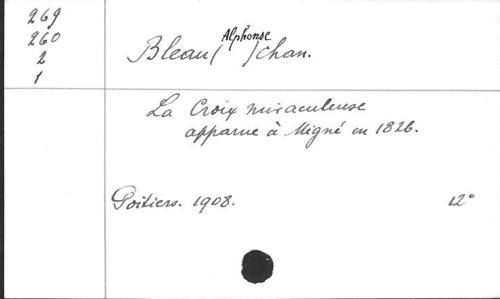 269
260
2
1
Bleau (Alphonse) chan.
La Croix miraculeuse
apparue à Migné en 1826.
Poitiers. 1908. 12°